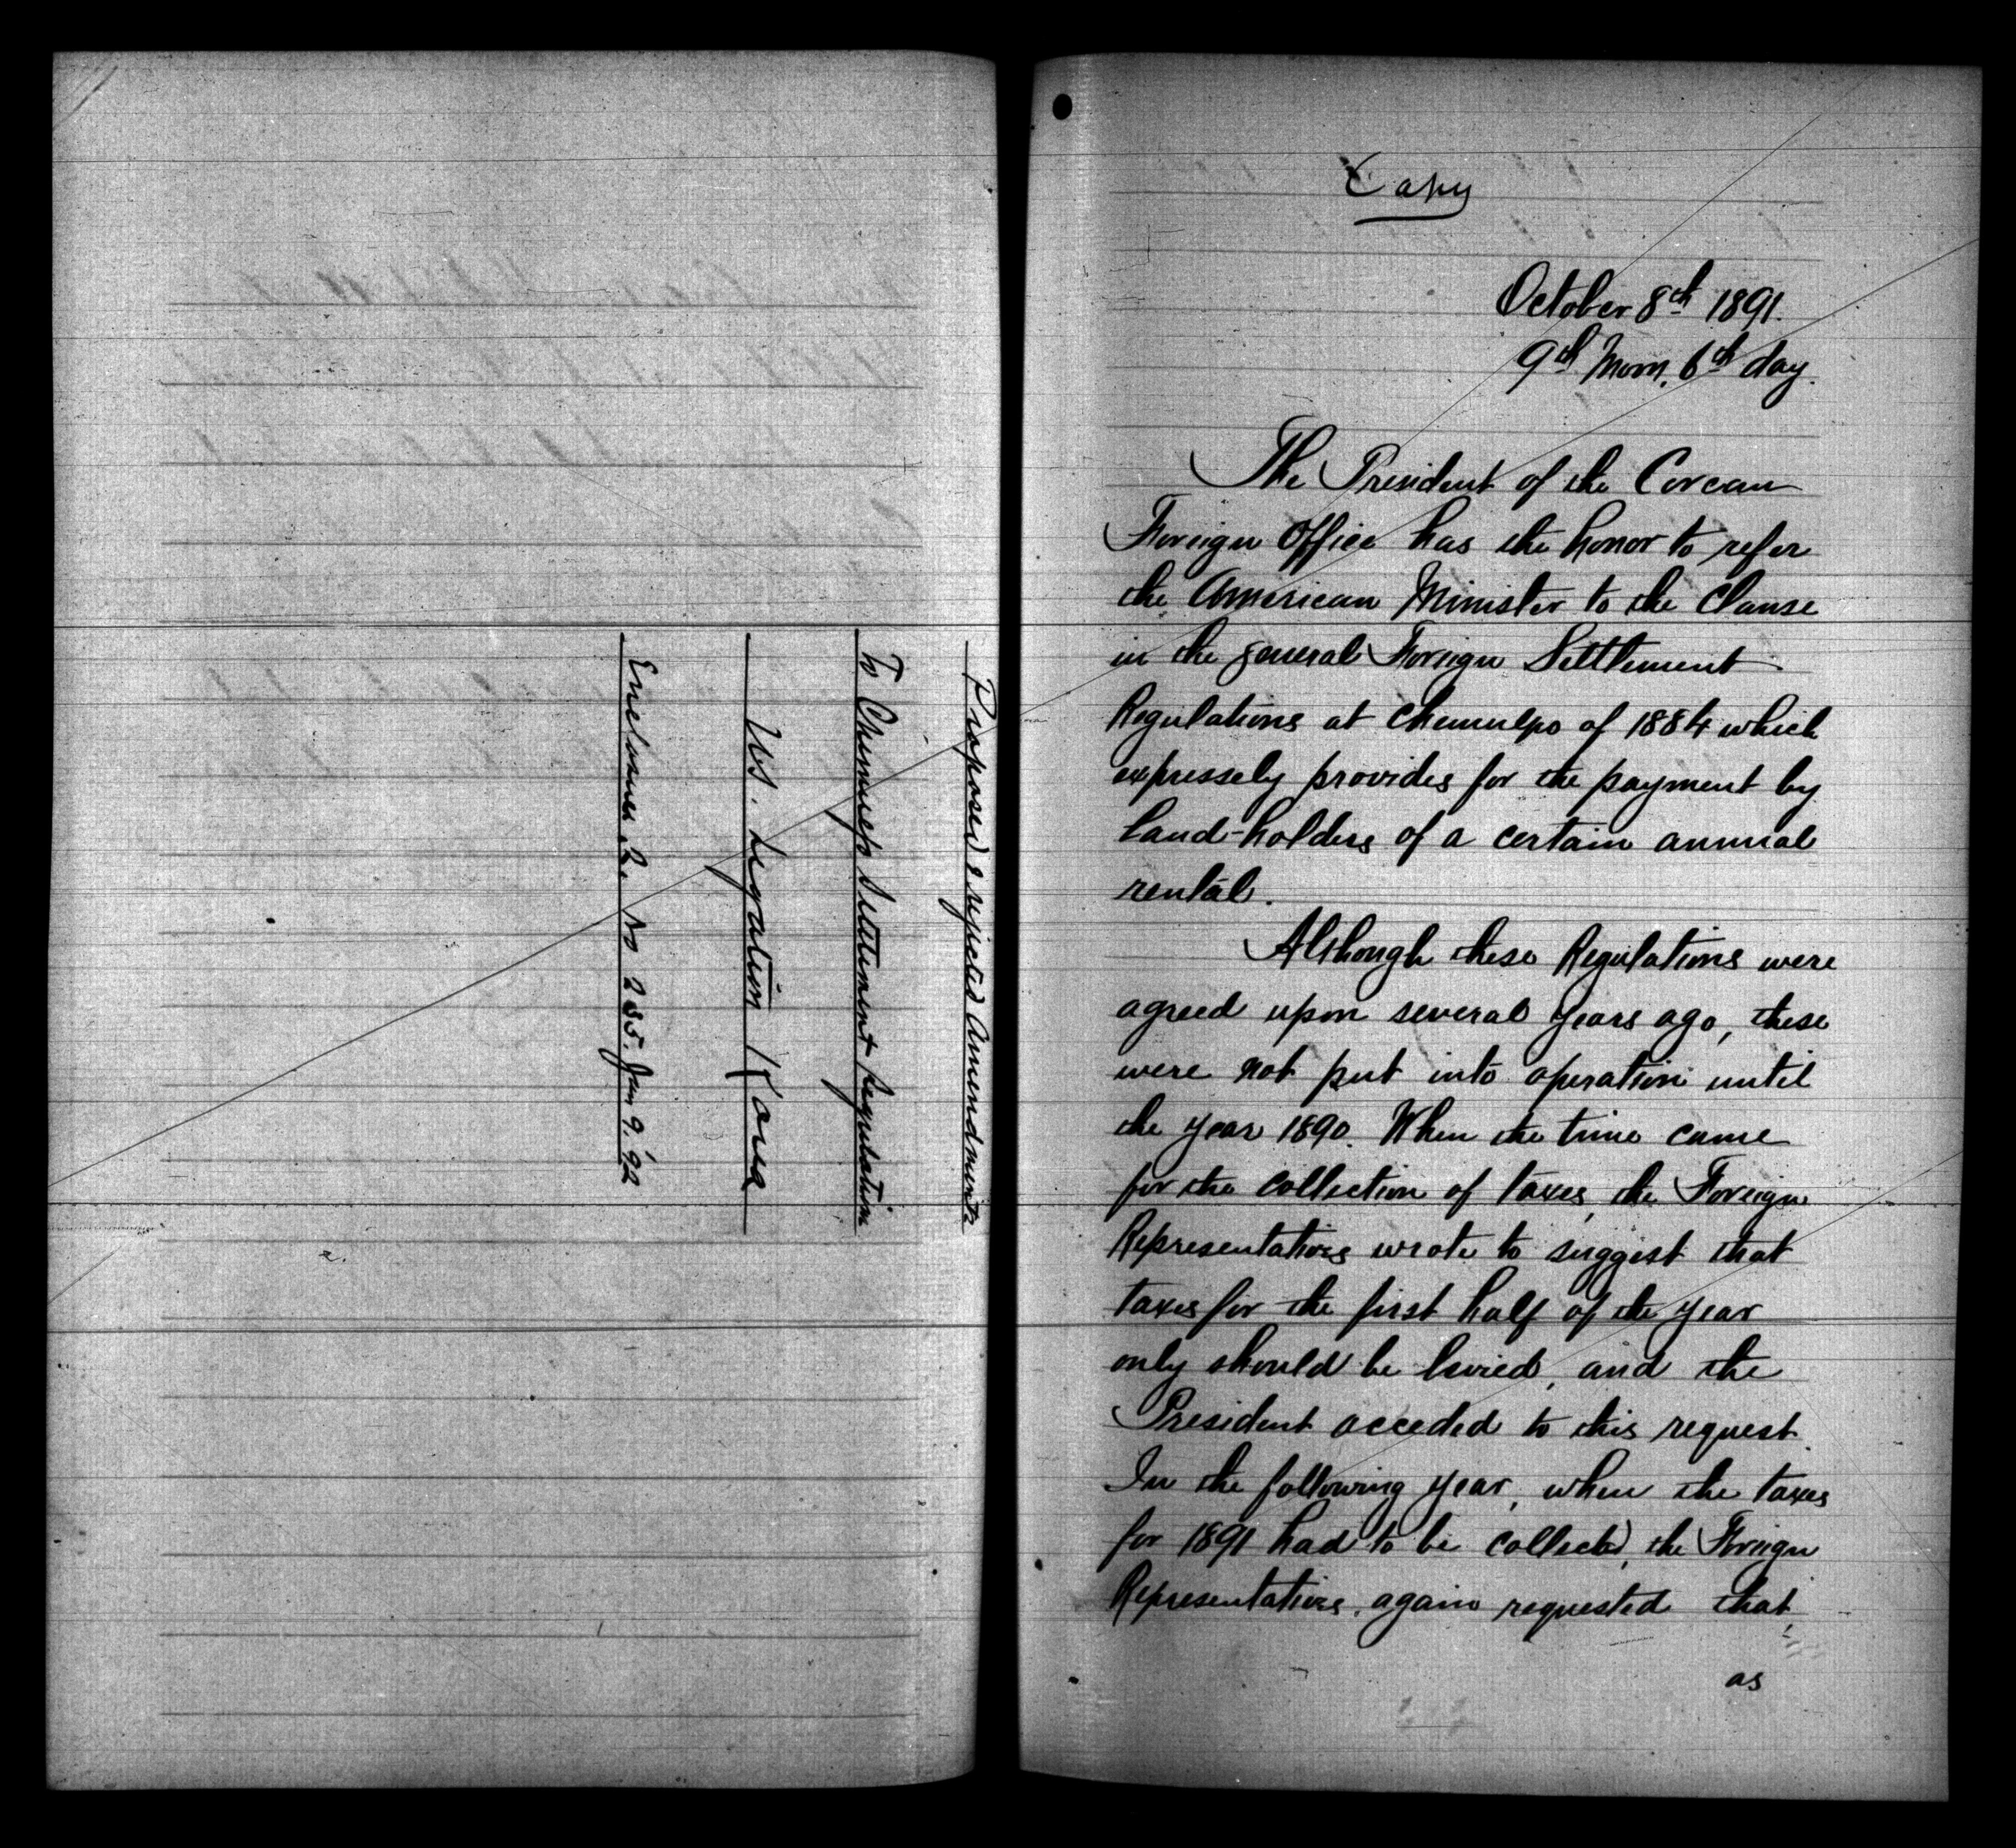 Proposed & rejected Amendments
To Chemulpo Settlement Regulation
US. Legation Korea
Enclosure 2. No 235. Jan 9. '92
Copy
October 8th 1891.
9th Moon, 6th day.
The President of the Corean
Foreign Office has the honor to refer
the American Minister to the Clause
in the general Foreign Settlement
Regulations at Chemulpo of 1884 which
expressely provides for the payment by
land-holders of a certain annual
rental.
Although these Regulations were
agreed upon several years ago, these
were not put into operation until
the year 1890. When the time came
for the collection of taxes, the Foreign
Representatives wrote to suggest that
taxes for the first half of the year
only should be levied, and the
President acceded to this request.
In the following year, when the taxes
for 1891 had to be collected, the Foreign
Representatives, again requested that,
as